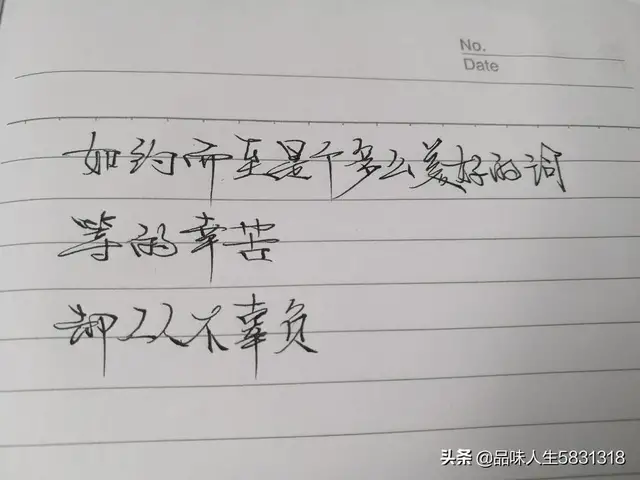 No.
Date
如约而至是个多么美好的词
等的幸苦
却从不辜负
头条 @品味人生5831318